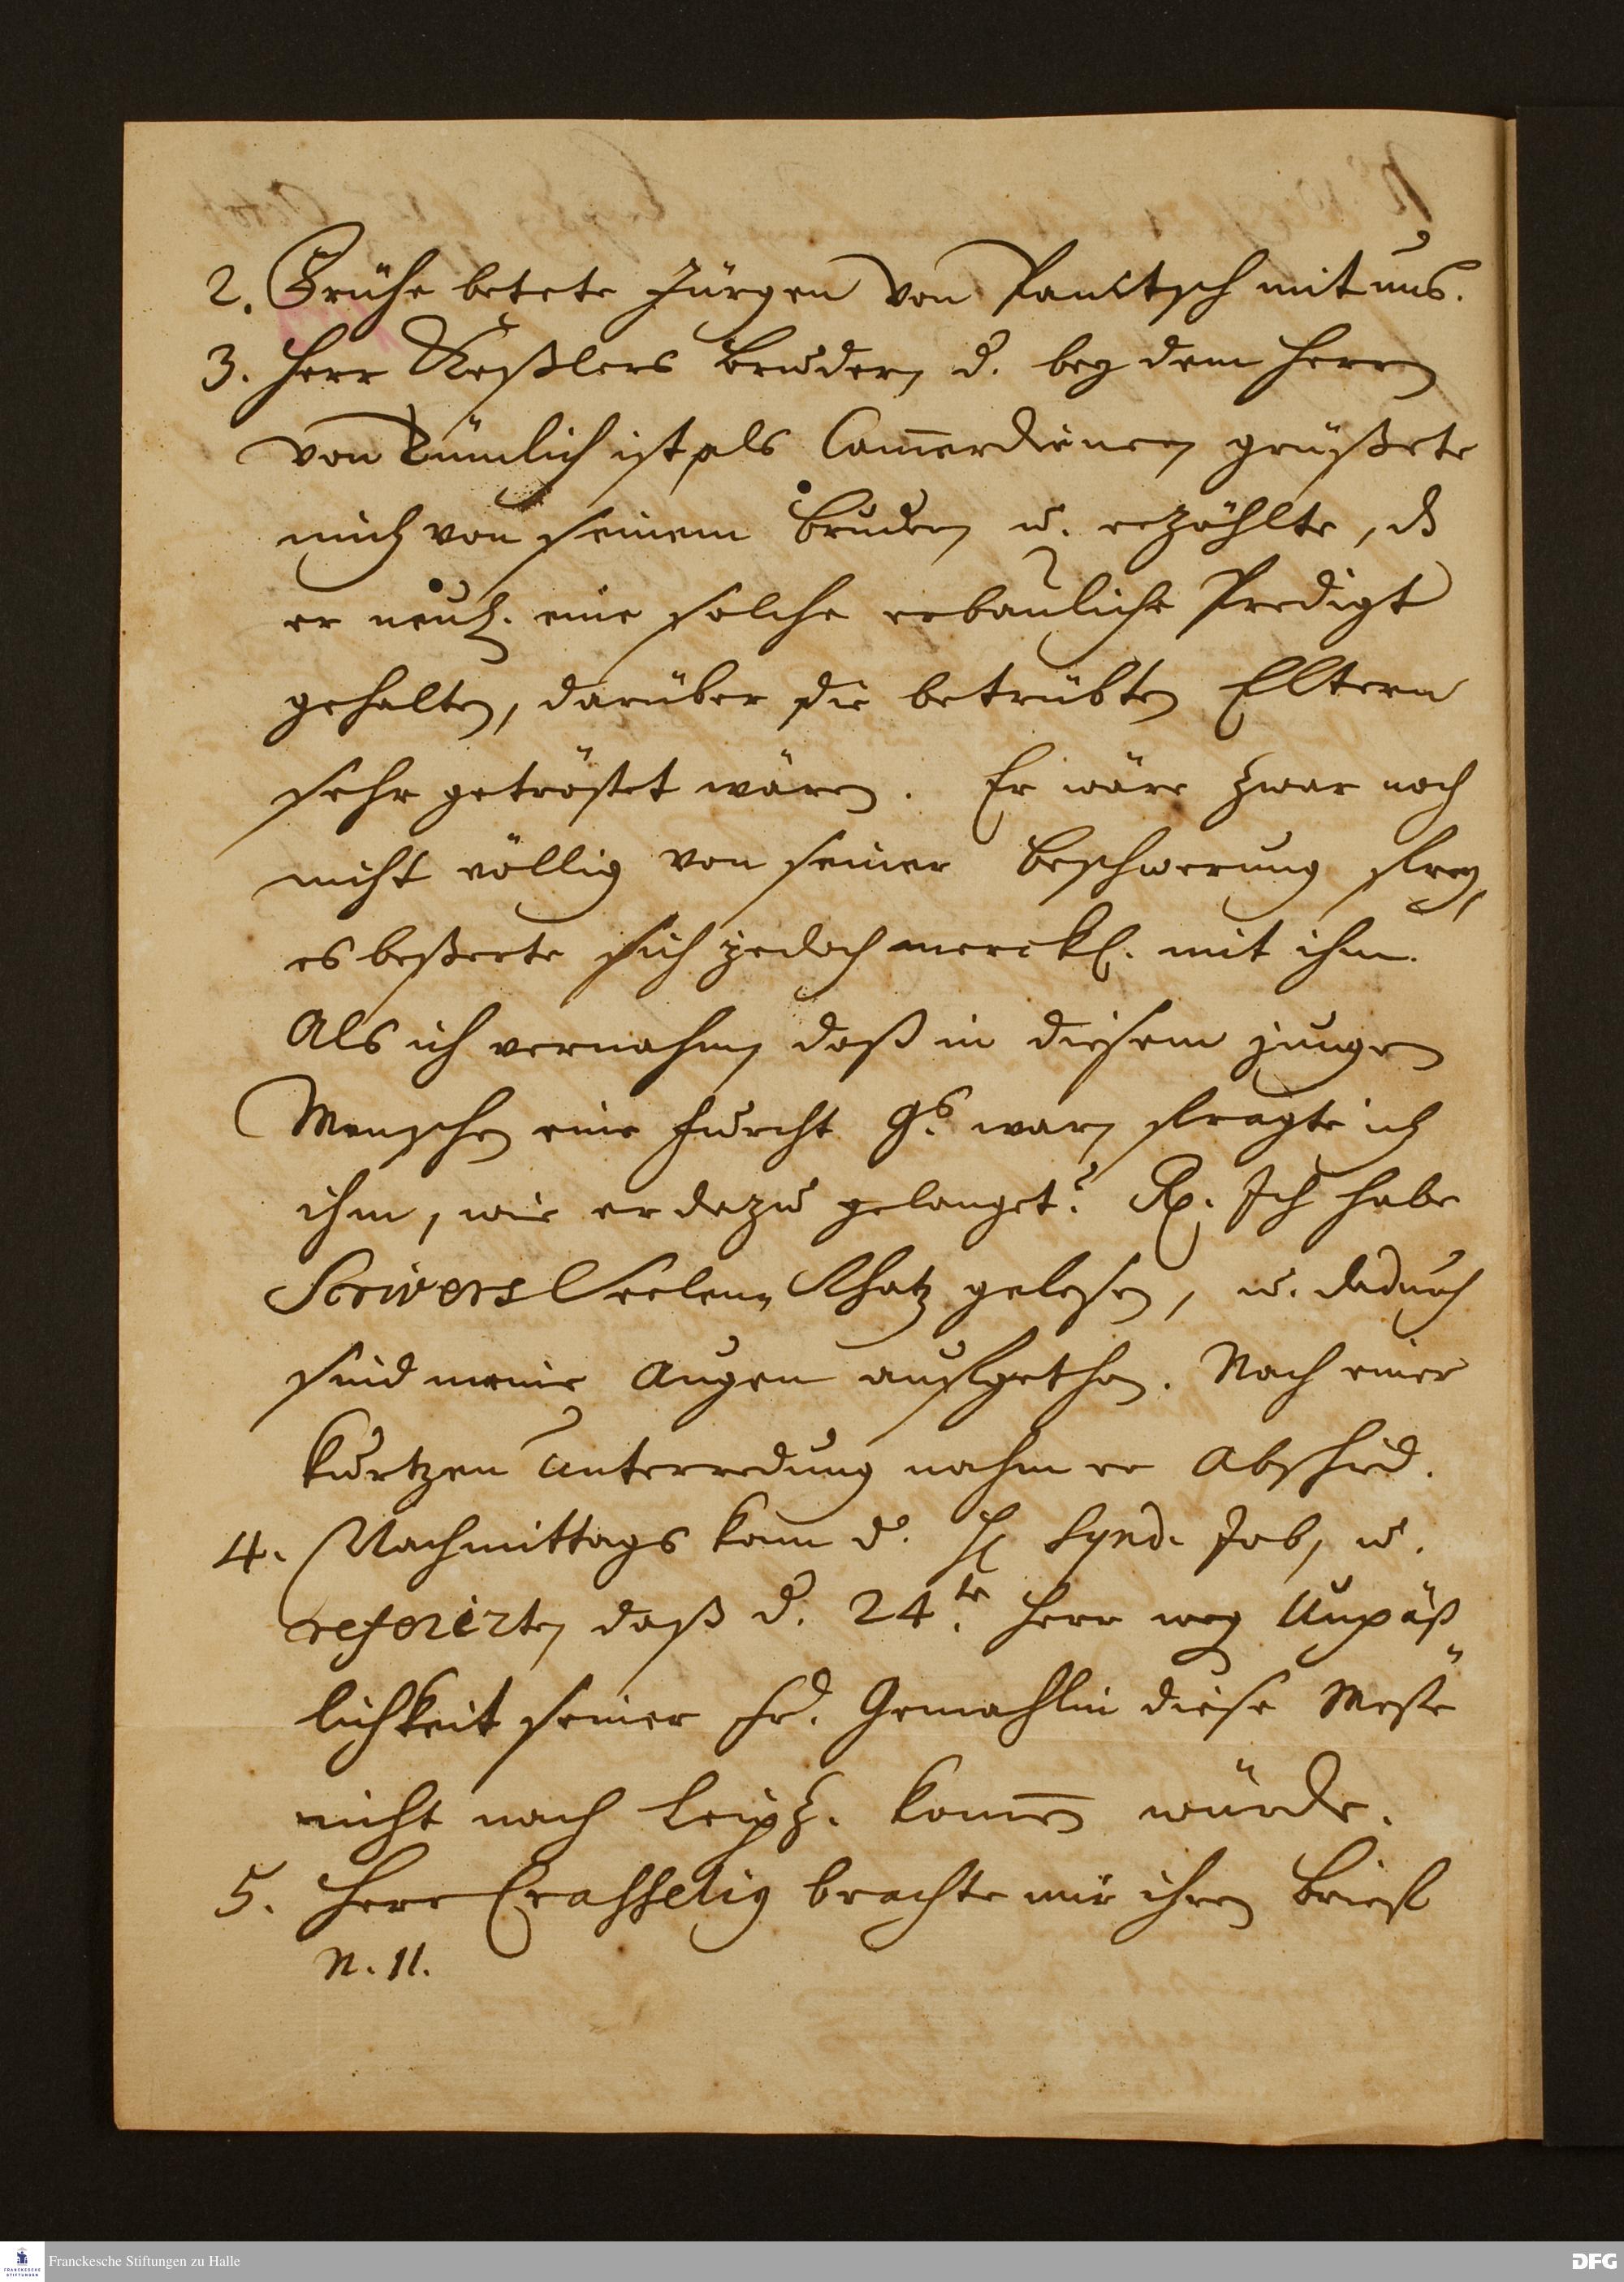 2. Frühe betete Jürgen von Panitsch mit uns.
3. Herr Keßlers Bruder, d. bey dem Herrn
von ist als Cam̄erdiener, grüßete
mich von seinem Bruder, u. erzählte, dß
er neul. eine solche erbauliche Predigt
gehalten, darüber die betrübten Eltern
sehr getröstet wären. Er wäre zwar noch
nicht völlig von seiner Beschwerung frey,
es beßerte sich jedoch merckl. mit ihm.
Als ich vernahm, daß in diesem jungen
Menschen eine Furcht Gs. war, fragte ich
ihm, wie er dazu gelanget? Rx. Ich habe
Scrivers Seelen-Schatz gelesen, u. dadurch
sind meine Augen aufgethan. Nach einer
kurtzen Unterredung nahm er Abschied.
4. Nachmittags kam d. H. Synd. Job, u.
referirte, daß d. 24.te Herr weg Unpäß
lichkeit seiner Fr. Gemahlin diese Meße
nicht nach Leipz. kom̄en würde.
5. Herr Crasselig brachte mir ihren Brief
N. 11.
Franckesche Stiftungen zu Halle
DFG